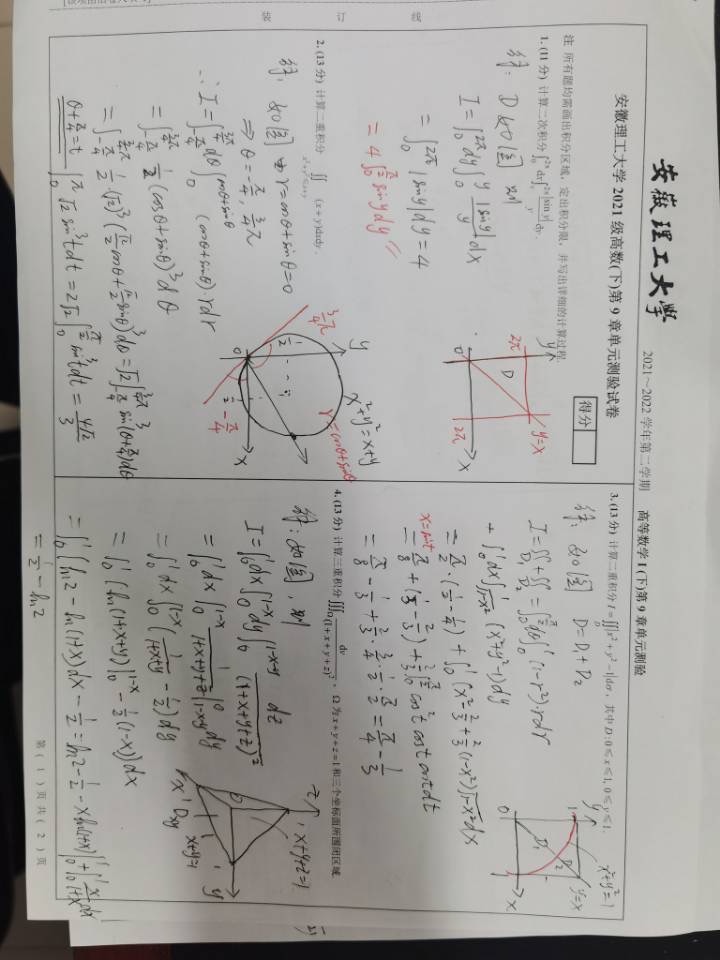 装 订 线
安徽理工大学
2021～2022 学年第二学期 高等数学 1 (下)第 9 章单元测验
安徽理工大学 2021 级高数(下)第 9 章单元测验试卷
得分
注 所有题均需画出积分区域，定出积分限，并写出详细的计算过程.
1. (11 分) 计算二次积分 ∫₀^{2π} dx ∫ₓ^{2π} |sin y|/y dy.
解: D如图 则
I = ∫₀^{2π} dy ∫₀^y |sin y|/y dx
= ∫₀^{2π} |sin y| dy = 4
= 4∫₀^{π/2} sin y dy
y
2π
D
y=x
0
2π
x
2. (13 分) 计算二重积分 ∬_{x²+y²≤x+y} (x+y)dxdy.
解: 如图 由 r=cosθ+sinθ=0
⇒ θ = -π/4, 3/4π
∴ I = ∫_{-π/4}^{3/4π} dθ ∫₀^{cosθ+sinθ} (cosθ+sinθ) r dr
= ∫_{-π/4}^{3/4π} 1/2 (cosθ+sinθ)³ dθ
= ∫_{-π/4}^{3/4π} 1/2·(√2)³ (√2/2 cosθ + √2/2 sinθ)³ dθ = √2 ∫_{-π/4}^{3/4π} sin³(θ+π/4) dθ
θ+π/4=t ∫₀^π √2 sin³t dt = 2√2 ∫₀^{π/2} sin³t dt = 4√2/3
y
x²+y²=x+y
3/4π
r=cosθ+sinθ
1/2
1/2
0
-π/4
x
3. (13 分) 计算二重积分 I = ∬_D |x²+y²-1|dσ, 其中 D: 0≤x≤1, 0≤y≤1.
解: 如图 D=D₁+D₂
I = ∬_{D₁} + ∬_{D₂} = ∫₀^{π/2} dθ ∫₀^1 (1-r²)·r dr
+ ∫₀^1 dx ∫_{√(1-x²)}^1 (x²+y²-1) dy
= π/2·(1/2-1/4) + ∫₀^1 (x²-2/3+2/3(1-x²)√(1-x²)) dx
x=sint = π/8 + (1/3-2/3) + 2/3 ∫₀^{π/2} cos²t cost cost dt
= π/8 - 1/3 + 2/3·3/4·1/2·π/2 = π/4 - 1/3
y
x²+y²=1
1
y=x
D₁
D₂
0
x
4. (13 分) 计算三重积分 ∭_Ω dv/(1+x+y+z)², Ω 为 x+y+z=1 和三个坐标面所围闭区域.
解: 如图, 则
I = ∫₀^1 dx ∫₀^{1-x} dy ∫₀^{1-x-y} dz/(1+x+y+z)²
= ∫₀^1 dx ∫₀^{1-x} 1/(1+x+y+z) |_{1-x-y}^0 dy
= ∫₀^1 dx ∫₀^{1-x} (1/(1+x+y) - 1/2) dy
= ∫₀^1 (ln(1+x+y)|₀^{1-x} - 1/2(1-x)) dx
= ∫₀^1 (ln2 - ln(1+x)) dx - 1/4 = ln2 - 1/4 - x ln(1+x)|₀^1 + ∫₀^1 x/(1+x) dx
z
x+y+z=1
0
y
x+y=1
Dxy
x
第 ( 1 ) 页 共 ( 2 ) 页